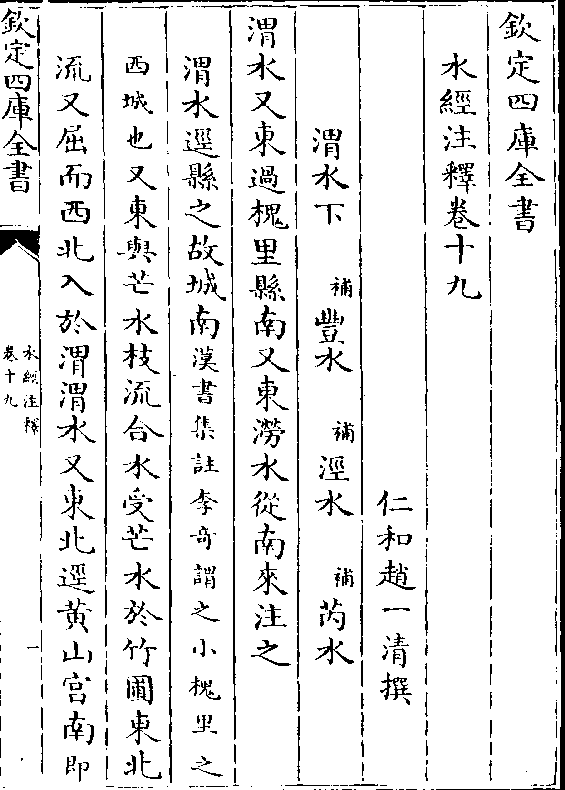 欽定四庫全書
水經注釋卷十九
仁和趙一清撰
渭水下 補豐水 補涇水 補芮水
渭水又東過槐里縣南又東澇水從南來注之
渭水逕縣之故城南漢書集註李奇謂之小槐里之
西城也又東與芒水枝流合水受芒水於竹圃東北
流又屈而西北入於渭渭水又東北逕黄山宫南即
欽定四庫全書
水經注釋
卷十九
一